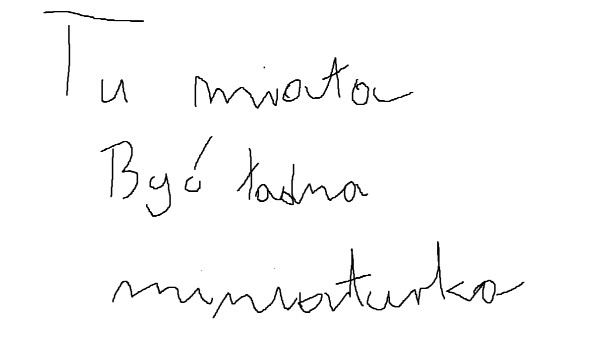 Tu miała
Być ładna
miniaturka